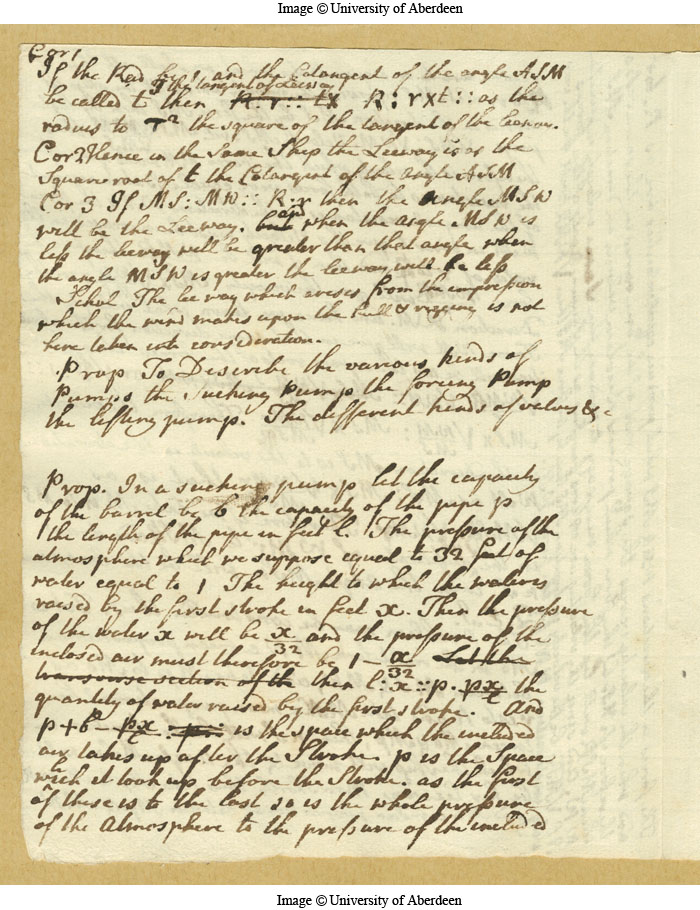 Image © University of Aberdeen
Cor 1
If the Rad be 1 and the Cotangent of the angle ASM
T the tangent of Leeway
be called t then R : r :: tx R : r x t :: as the
radius to T² the square of the tangent of the leeway.
Cor 2 Hence in the Same Ship the Leeway is as the
Square root of t the Cotangent of the angle ASM
Cor 3 If MS : MW :: R : r then the angle MSW
will be the Leeway. but and when the angle MSW is
less the leeway will be greater than that angle when
the angle MSW is greater the leeway will be less
Schol The lee way which arises from the impression
which the wind makes upon the hull & rigging is not
here taken into consideration.
Prop To Describe the various kinds of
Pumps the Sucking Pump the forcing Pump
the lifting pump. The different kinds of valves &c
Prop. In a sucking pump let the capacity
of the barrel be b the capacity of the pipe p
the length of the pipe in feet l. The pressure of the
atmosphere which we suppose equal to 32 feet of
water equal to 1 The height to which the water is
raised by the first stroke in feet x. Then the pressure
of the water x will be x/32 and the pressure of the
inclosed air must therefore be 1 - x/32 Let the
transverse section of the then l : x :: p . px/l the
quantity of water raised by the first stroke. And
p + b - px/l is the space which the included
air takes up after the Stroke. p is the Space
wch it took up before the Stroke. as the first
of these is to the last so is the whole pressure
of the atmosphere to the pressure of the included
Image © University of Aberdeen